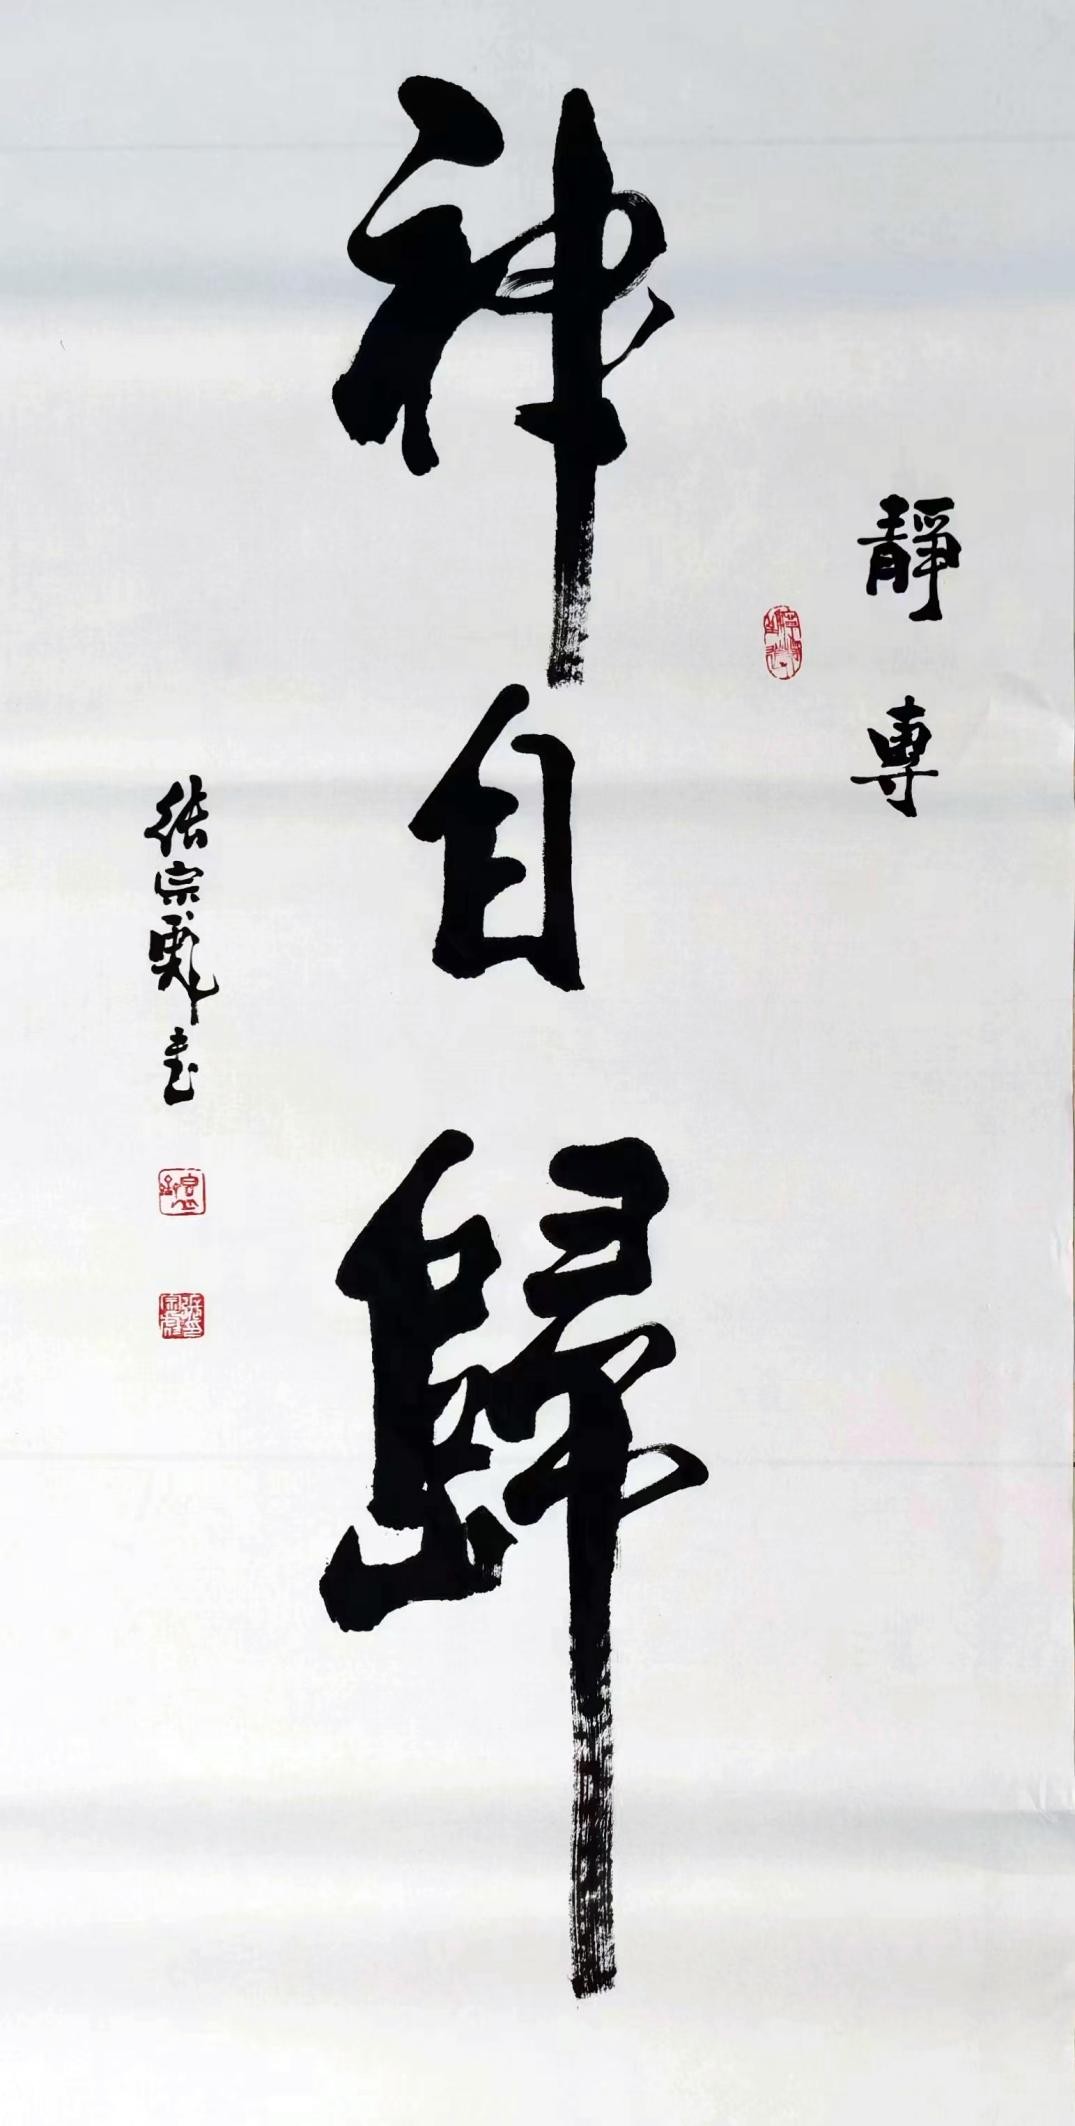 靜專
神自歸
張宗彪書